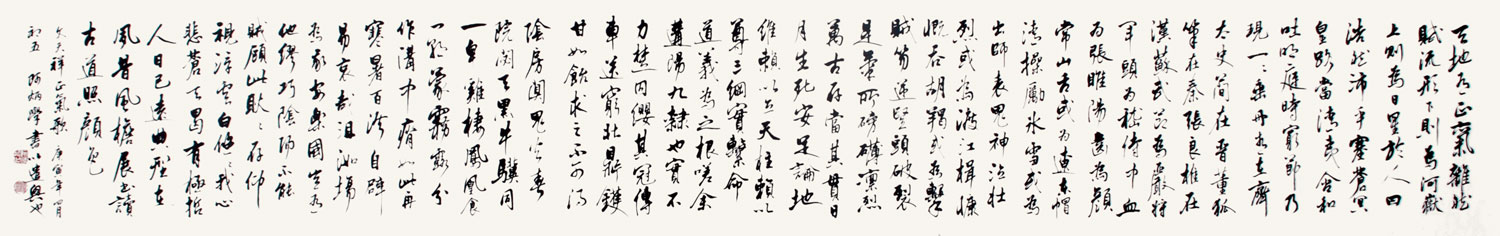 天地有正氣雜然
賦流形下則為河嶽
上則為日星於人曰
浩然沛乎塞蒼冥
皇路當清夷含和
吐明庭時窮節乃
現一一垂丹青在齊
太史簡在晉董狐
筆在秦張良椎在
漢蘇武節為嚴將
軍頭為嵇侍中血
為張睢陽齒為顏
常山舌或為遼東帽
清操勵冰雪或為
出師表鬼神泣壯
烈或為渡江楫慷
慨吞胡羯或為擊
賊笏逆豎頭破裂
是氣所磅礴凜烈
萬古存當其貫日
月生死安足論地
維賴以立天柱賴以
尊三綱實繫命
道義為之根嗟余
遘陽九隸也實不
力楚囚纓其冠傳
車送窮北鼎鑊
甘如飴求之不可得
陰房闃鬼火春
院閟天黑牛驥同
一皂雞棲鳳凰食
一朝蒙霧露分
作溝中瘠如此再
寒暑百沴自辟
易哀哉沮洳場
為我安樂國豈有
他繆巧陰陽不能
賊顧此耿耿存仰
視浮雲白悠悠我心
悲蒼天曷有極哲
人日已遠典型在
夙昔風檐展書讀
古道照顏色
文天祥正氣歌 庚寅年四月
初五 炳學書